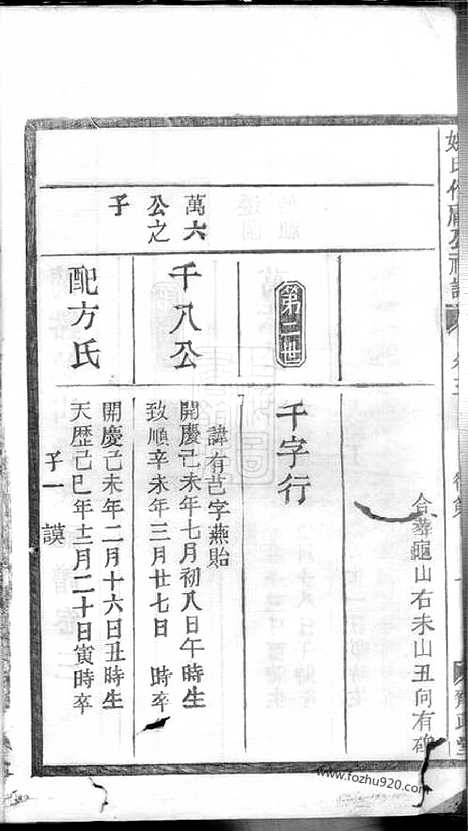 合葬龜山右未山丑向有碑
第二世
千字行
萬六
公之
子
千八公
諱有芑字燕貽
開慶己未年七月初八日午時生
致順辛未年三月廿七日 時卒
配方氏
開慶己未年二月十六日丑時生
天歷己巳年十二月二十日寅時卒
子一 謨
www.fozhu920.com